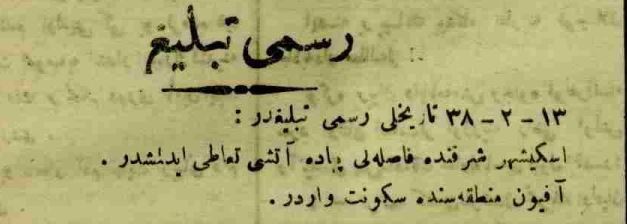 رسمی تبلیغ
١٣ - ٢ - ٣٨ تاریخلی رسمی تبلیغدر :
اسکیشهر شرقنده فاصله‌لی پیاده آتشی تعاطی ایدلمشدر .
آفیون منطقه‌سنده سکونت واردر .